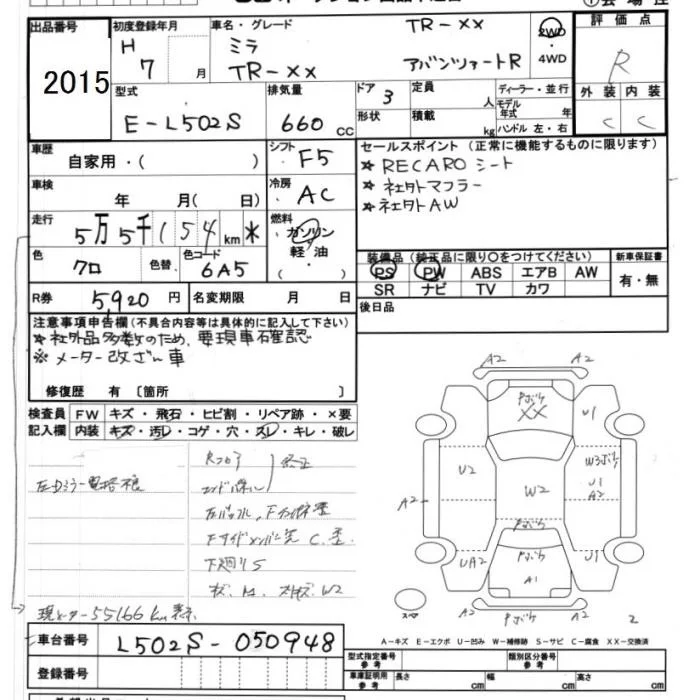 出品番号
2015
初度登録年月
H
7 月
車名・グレード
ミラ
TR-XX
TR-XX
アバンツァートR
2WD
4WD
評価点
R
外装 内装
C C
型式
E-L502S
排気量
660 CC
ドア 3
形状
定員 人
積載 kg
ディーラー・並行
モデル年式 年
ハンドル 左・右
車歴
自家用・( )
シフト F5
セールスポイント (正常に機能するものに限ります)
★RECAROシート
★社外マフラー
★社外AW
車検
年 月( 日)
冷房 AC
走行
5万5千154km*
燃料
ガソリン
軽・油
( )
色
クロ
色替
色コード
6A5
装備品 (純正品に限り○をつけてください)
PS PW ABS エアB AW
SR ナビ TV カワ
新車保証書
有・無
R券 5,920 円
名変期限 月 日
後日品
注意事項申告欄 (不具合内容等は具体的に記入して下さい)
★社外品多数のため、要現車確認
※メーター改ざん車
修復歴 有〔箇所 〕
検査員
記入欄
FW キズ・飛石・ヒビ割・リペア跡・×要
内装 キズ・汚レ・コゲ・穴・スレ・キレ・破レ
下廻りS
現メーター55166km表示
A2
A2
XX
U1
U2
W2
U1
A2
A2
A2
UA2
A1
U1
A2
A2
スペア
2
A-キズ E-エクボ U-凹み W-補修跡 S-サビ C-腐食 XX-交換済
車台番号 L502S-050948
登録番号
型式指定番号
参考
類別区分番号
参考
車庫証明用
参考
長さ cm
幅 cm
高さ cm